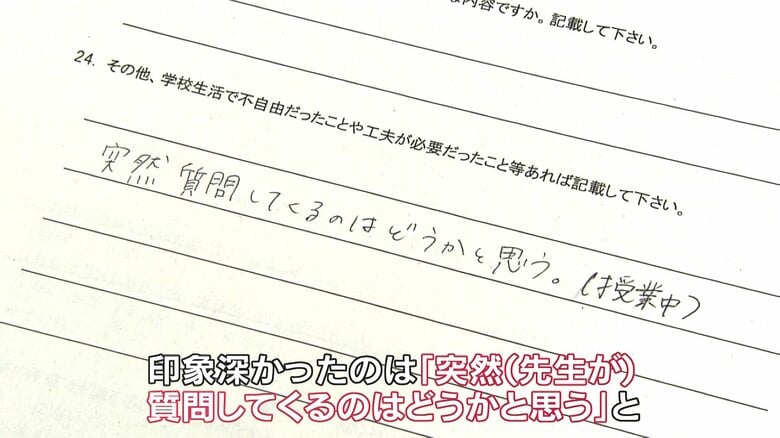 な内容ですか。記載して下さい。
24. その他、学校生活で不自由だったことや工夫が必要だったこと等あれば記載して下さい。
突然 質問してくるのはどうかと思う。(授業中)
印象深かったのは「突然(先生が)
質問してくるのはどうかと思う」と